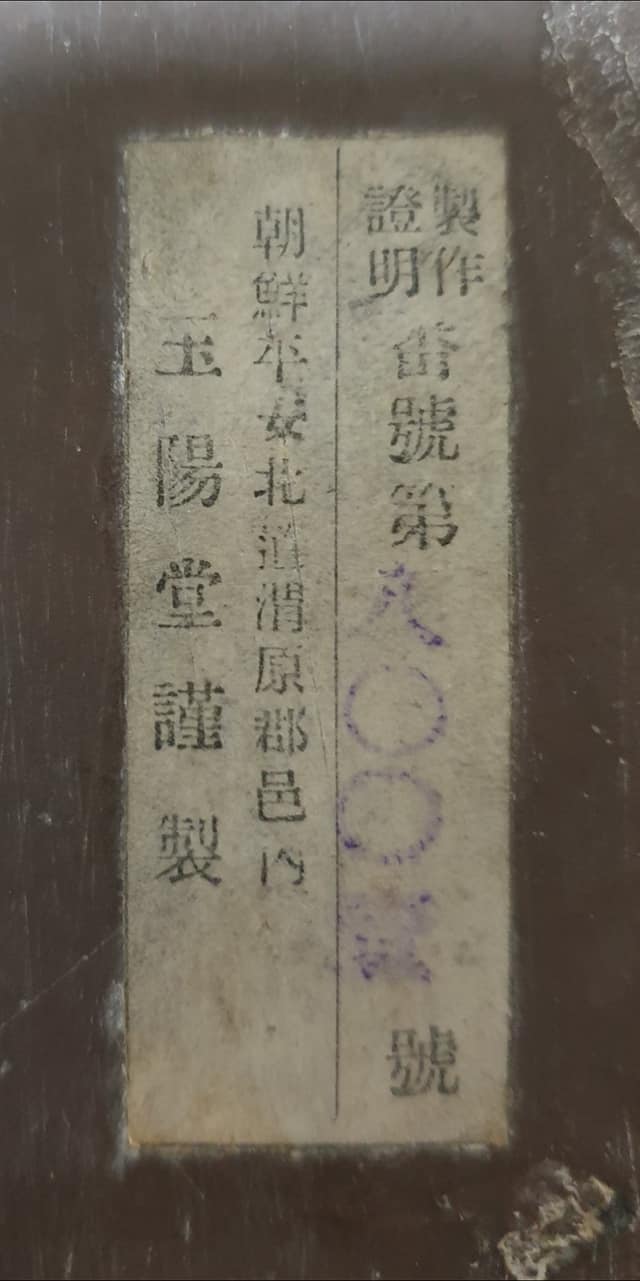 製作
證明
番號第八〇〇號
朝鮮平安北道渭原郡邑內
玉陽堂謹製